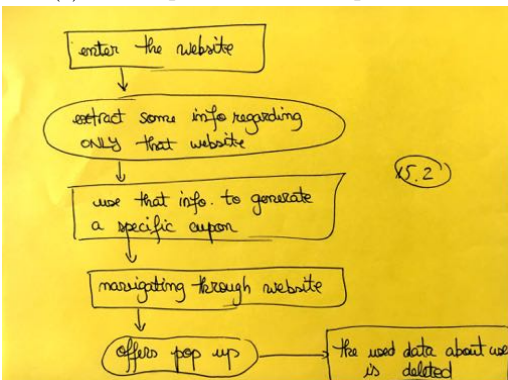 enter the website
extract some info regarding
ONLY that website
use that info. to generate
a specific cupon
navigating through website
offers pop up
the used data about use
is deleted